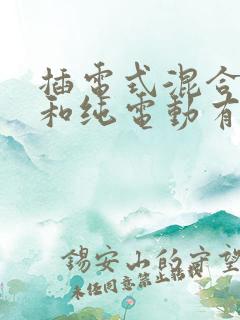 插電式混合
和纯電動有
錫安山的守望
未经同意禁止转授